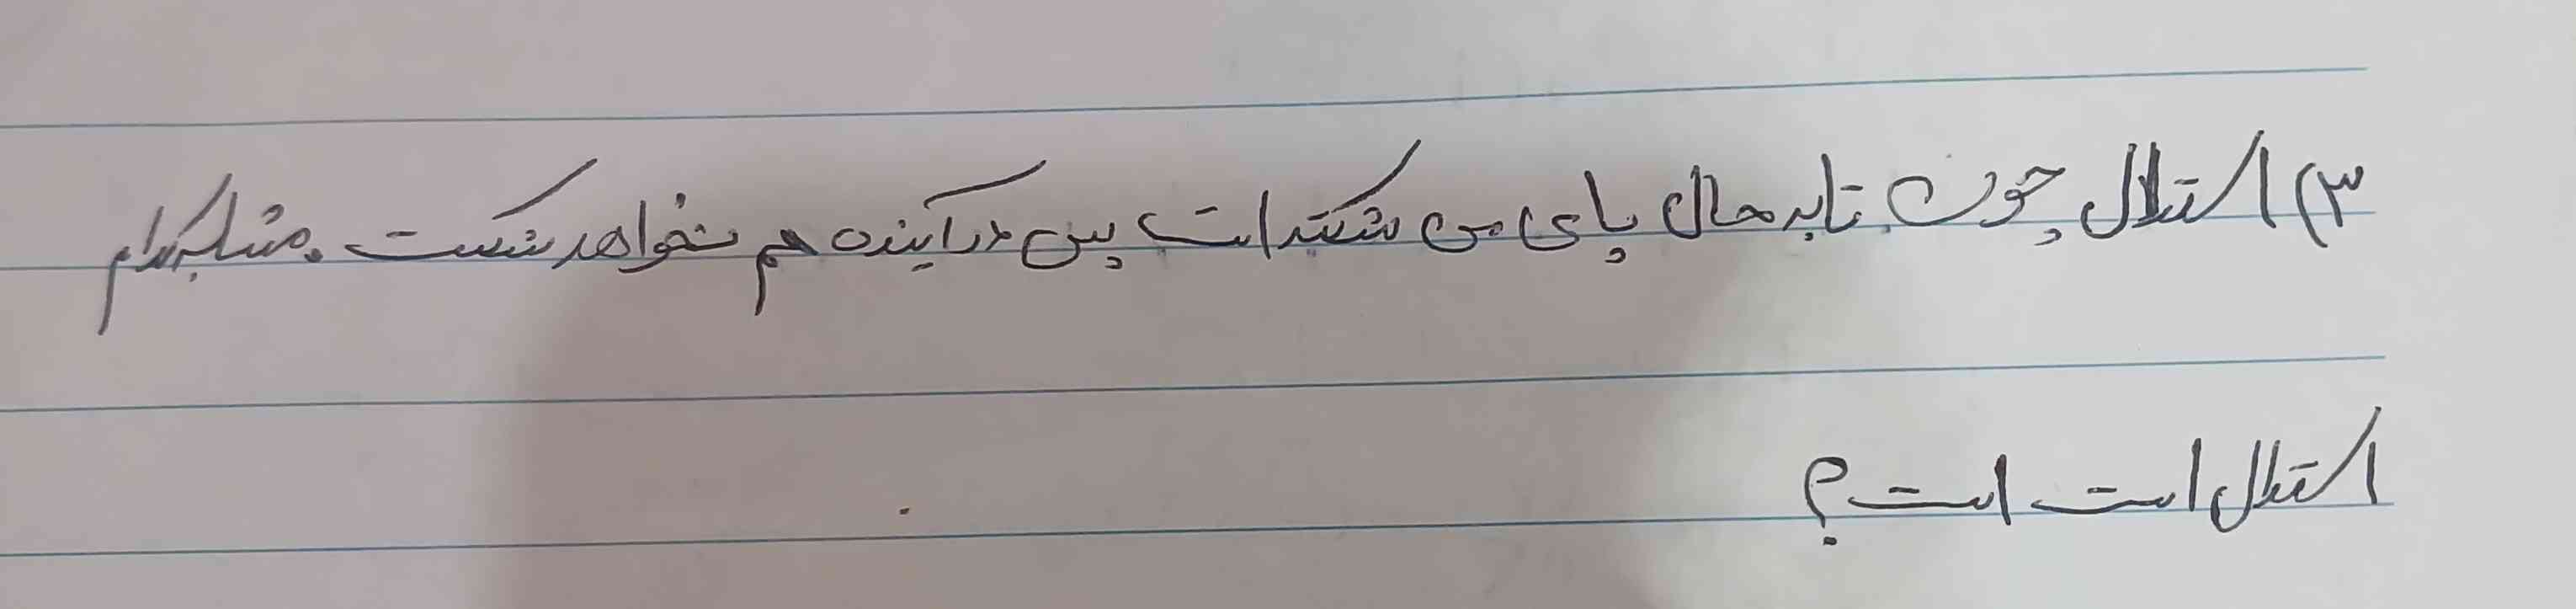 ۳) استدلال چون تا به حال پای من شکسته است پس در آینده هم نخواهد شکست. مشابه کدام
استدلال است است؟